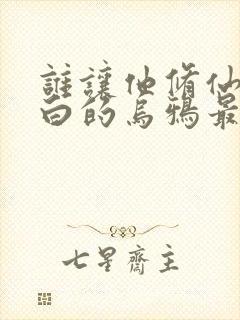 誰讓他修仙
白的烏鴉最
七星齋主